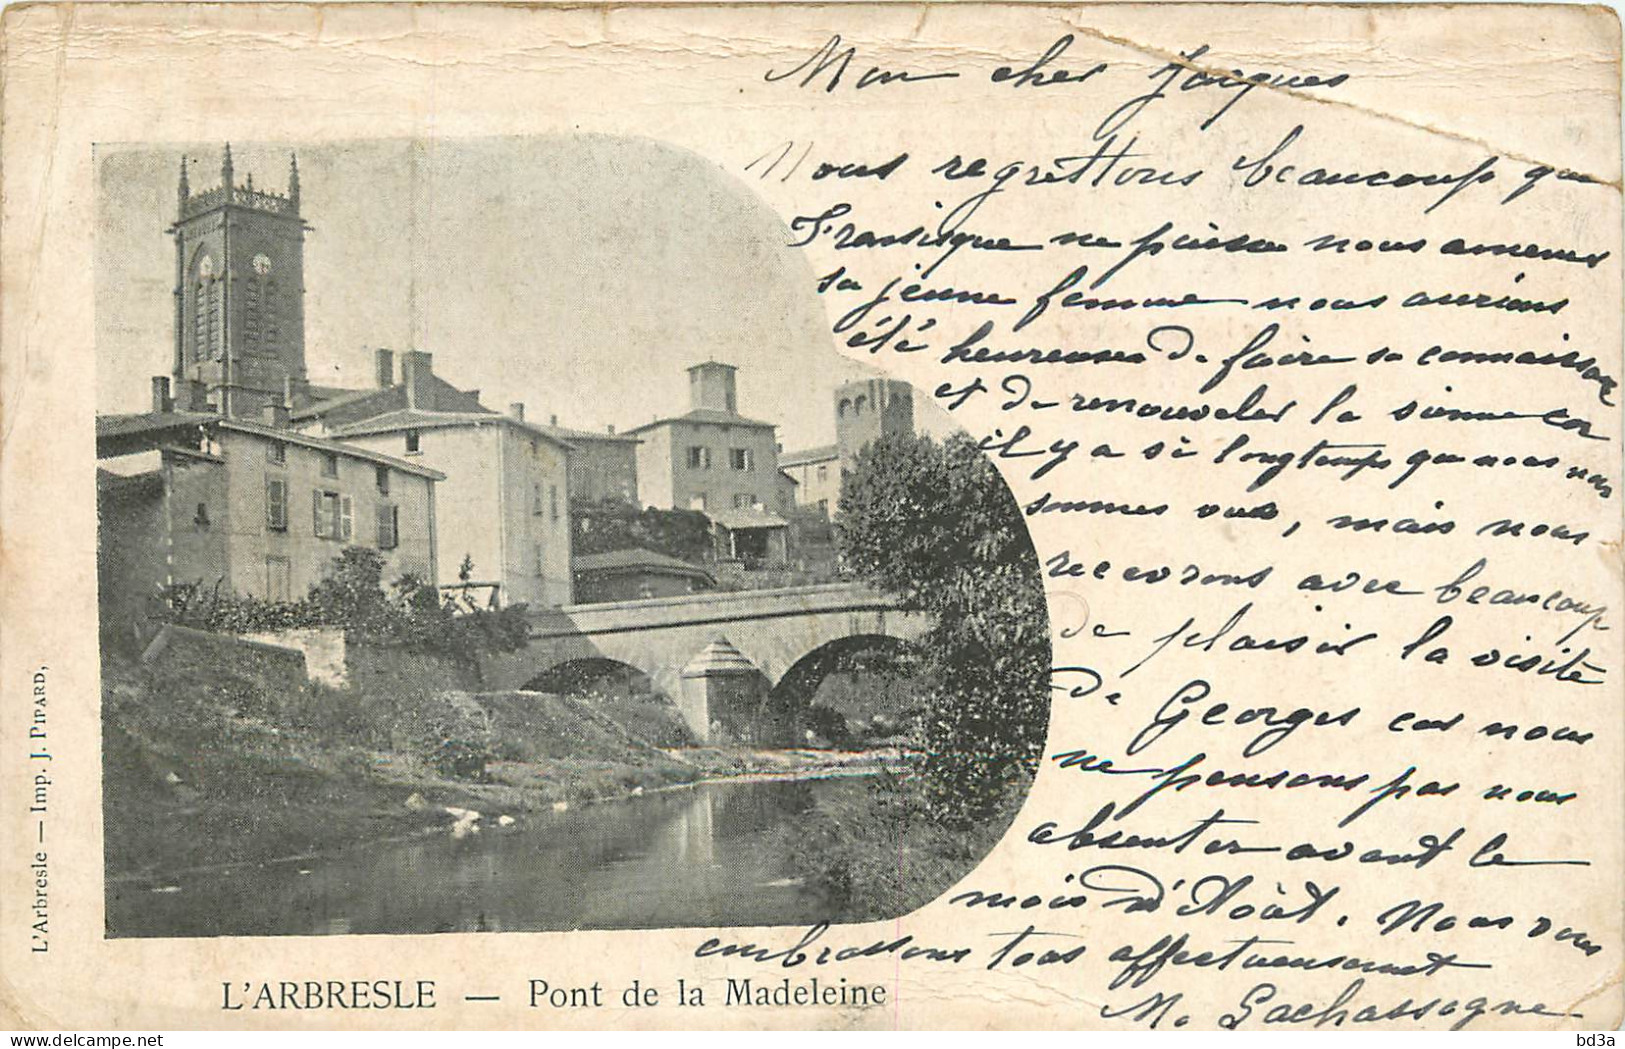 Mon cher Jacques
Nous regrettons beaucoup que
ne puisse nous amener
sa jeune femme nous aurions
été heureuses de faire sa connaissance
et de renouveler la sienne car
il y a si longtemps que nous nous
sommes vus, mais nous
recevrons avec beaucoup
de plaisir la visite
de Georges car nous
ne pensons pas nous
absenter avant le
mois d'Août. Nous vous
embrassons tous affectueusement
M. Lachassagne
L'ARBRESLE — Pont de la Madeleine
L'Arbresle — Imp. J. PIPARD,
delcampe.net
bd3a